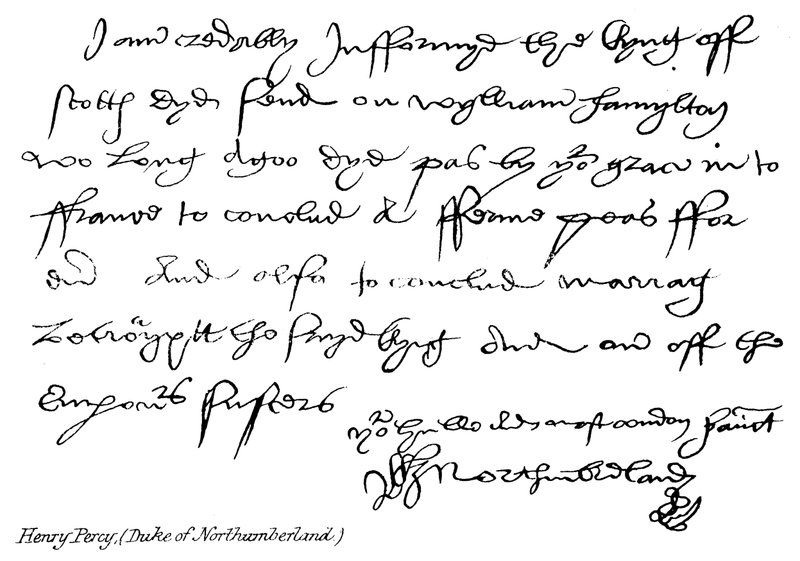 I am credably Infformyd the kyng off
Scotts dyd send on wylliam hamylton
wo long agoo dyd pas by yor grace in to
ffrance to conclud a fferme peas ffor
evr And also to conclud marrag
betwyxtt the sayd kyng And on off the
Emporrs susters
yor most servnt
H Northumberland
Henry Percy, (Duke of Northumberland.)